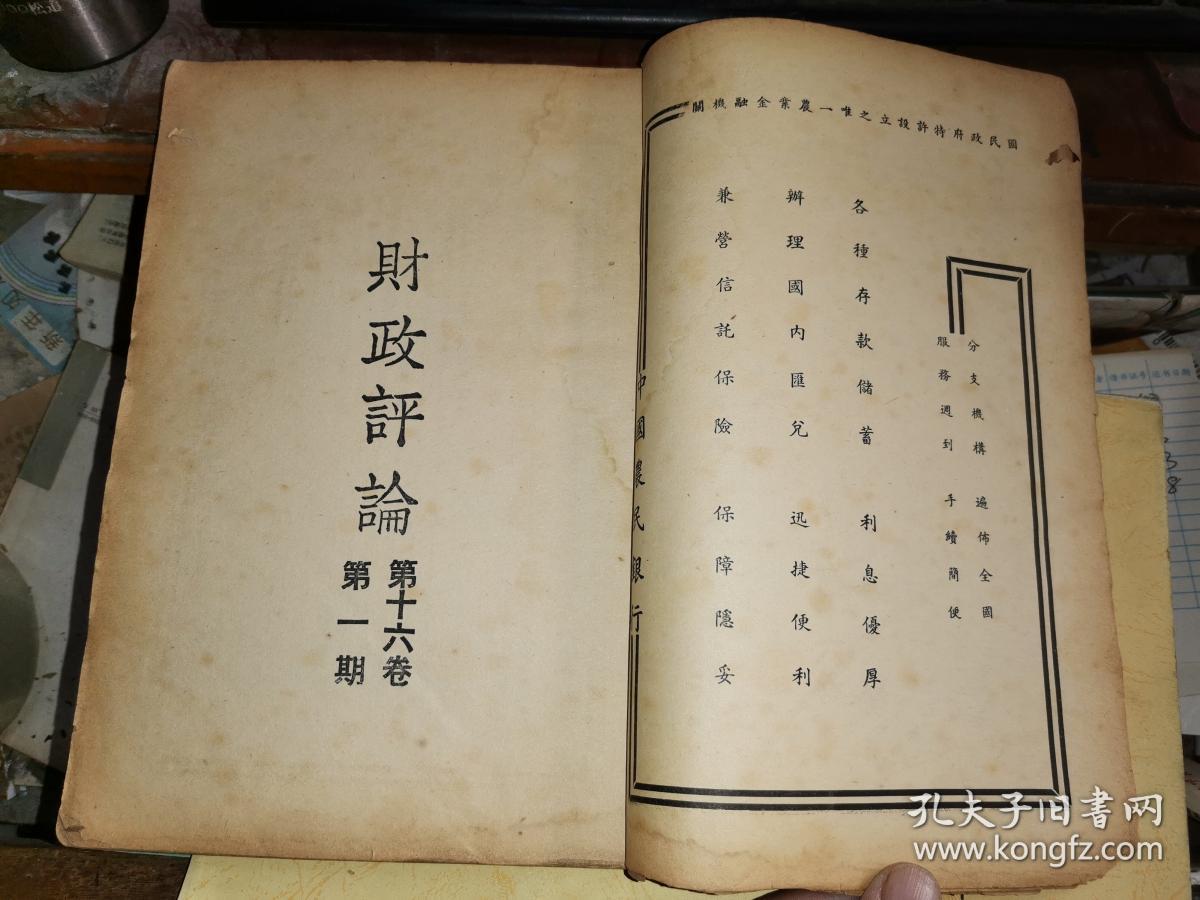 財政評論
第十六卷
第一期
國民政府特許設立之唯一農業金融機關
分支機構 遍佈全國
服務週到 手續簡便
各種存款儲蓄 利息優厚
辦理國內匯兌 迅捷便利
兼營信託保險 保障隱妥
中國農民銀行
孔夫子旧书网
www.kongfz.com